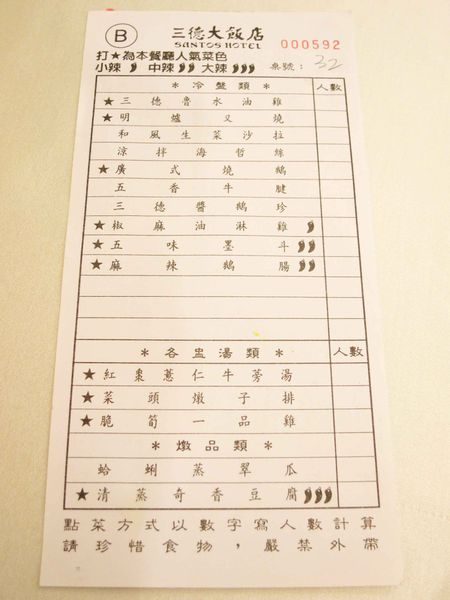 B 三德大飯店
SANTOS HOTEL 000592
打★為本餐廳人氣菜色
小辣 中辣 大辣 桌號：32
＊冷盤類＊ 人數
★三德魯水油雞
★明爐叉燒
和風生菜沙拉
涼拌海哲絲
★廣式燒鵝
五香牛腱
三德醬鵝珍
★椒麻油淋雞
★五味墨斗
★麻辣鵝腸
＊各盅湯類＊ 人數
★紅棗薏仁牛蒡湯
★菜頭燉子排
★脆筍一品雞
＊燉品類＊
蛤蜊蒸翠瓜
★清蒸奇香豆腐
點菜方式以數字寫人數計算
請珍惜食物，嚴禁外帶